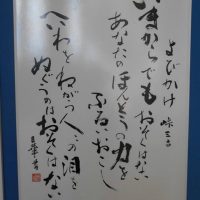 よびかけ 峠三吉
いまからでもおそくはない
あなたのほんとうの力を
ふるいおこし
へいわをねがう人への泪を
ぬぐうのはおそくはない